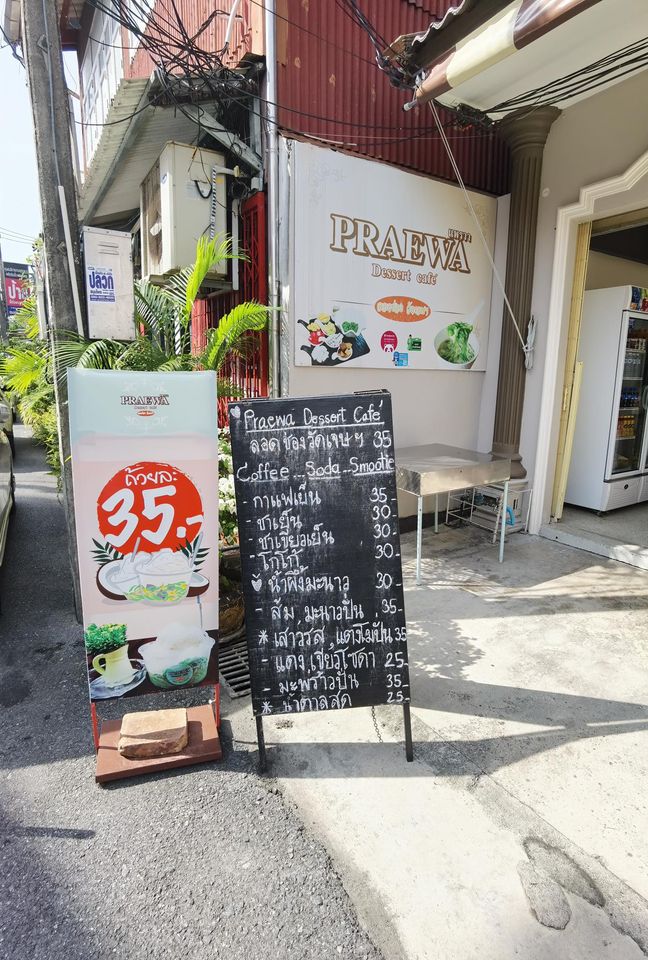 แพรวา
PRAEWA
Dessert café
PRAEWA
Dessert café
ถ้วยละ
35.-
Praewa Dessert Cafe'
ลอดช่องวัดเจษฯ 35
Coffee - Soda - Smootie
- กาแฟเย็น 35.-
- ชาเย็น 30.-
- ชาเขียวเย็น 30.-
- โกโก้ 30.-
น้ำผึ้งมะนาว 30.-
- ส้ม, มะนาวปั่น, 35.-
* เสาวรส, แตงโมปั่น 35
- แดง, เขียวโซดา 25.-
- มะพร้าวปั่น 35
* น้ำตาลสด 25.-
ปลวก